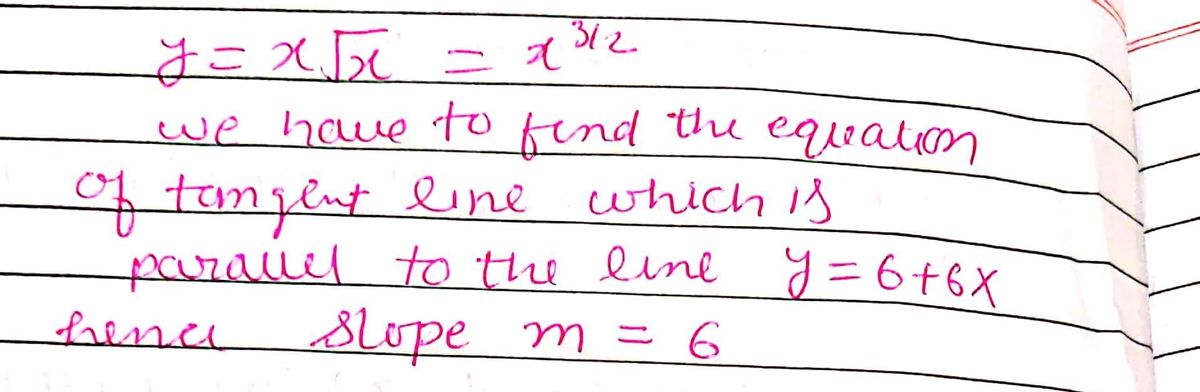 y = x√x = x^3/2
we have to find the equation
of tangent line which is
parallel to the line y = 6+6x
hence slope m = 6